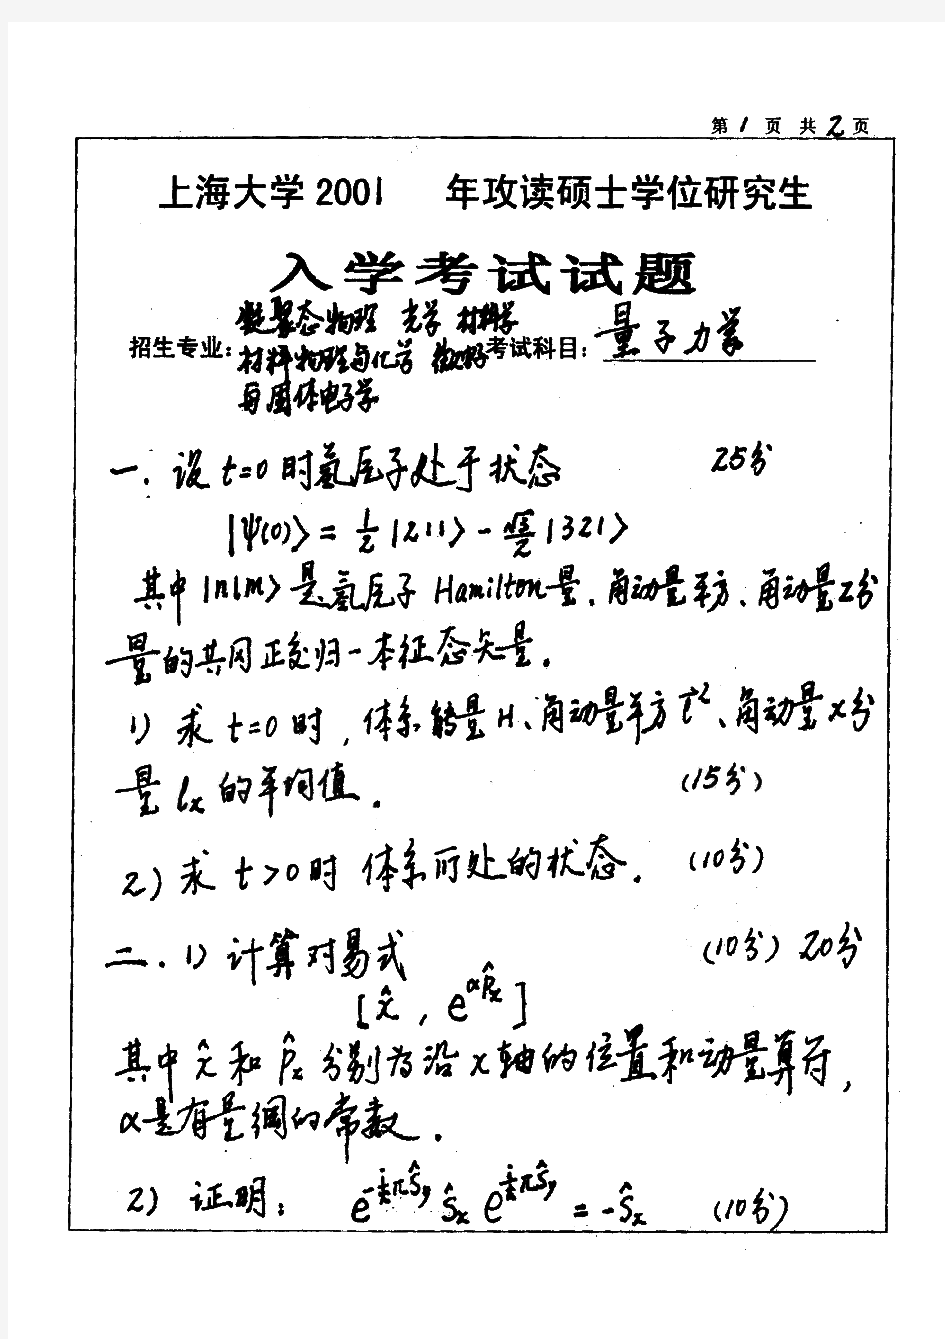 第 1 页 共 2 页
上海大学 2001 年攻读硕士学位研究生
入学考试试题
招生专业: 凝聚态物理 光学 材料学
材料物理与化学 微电子 考试科目: 量子力学
与固体电子学
一. 设 t=0 时氢原子处于状态 25分
|ψ(0)> = 1/2 |211> - √3/2 |321>
其中 |nlm> 是氢原子 Hamilton 量、角动量平方、角动量Z分
量的共同正交归一本征态矢量.
1) 求 t=0 时, 体系能量 H、角动量平方 l⃗², 角动量 x 分
量 lx 的平均值. (15分)
2) 求 t>0 时 体系所处的状态. (10分)
二. 1) 计算对易式 (10分) 20分
[x̂, e^{αp̂x}]
其中 x̂ 和 p̂x 分别为沿 x 轴的位置和动量算符,
α是有量纲的常数.
2) 证明: e^{-i/ħ πŜy} Ŝx e^{i/ħ πŜy} = -Ŝx (10分)